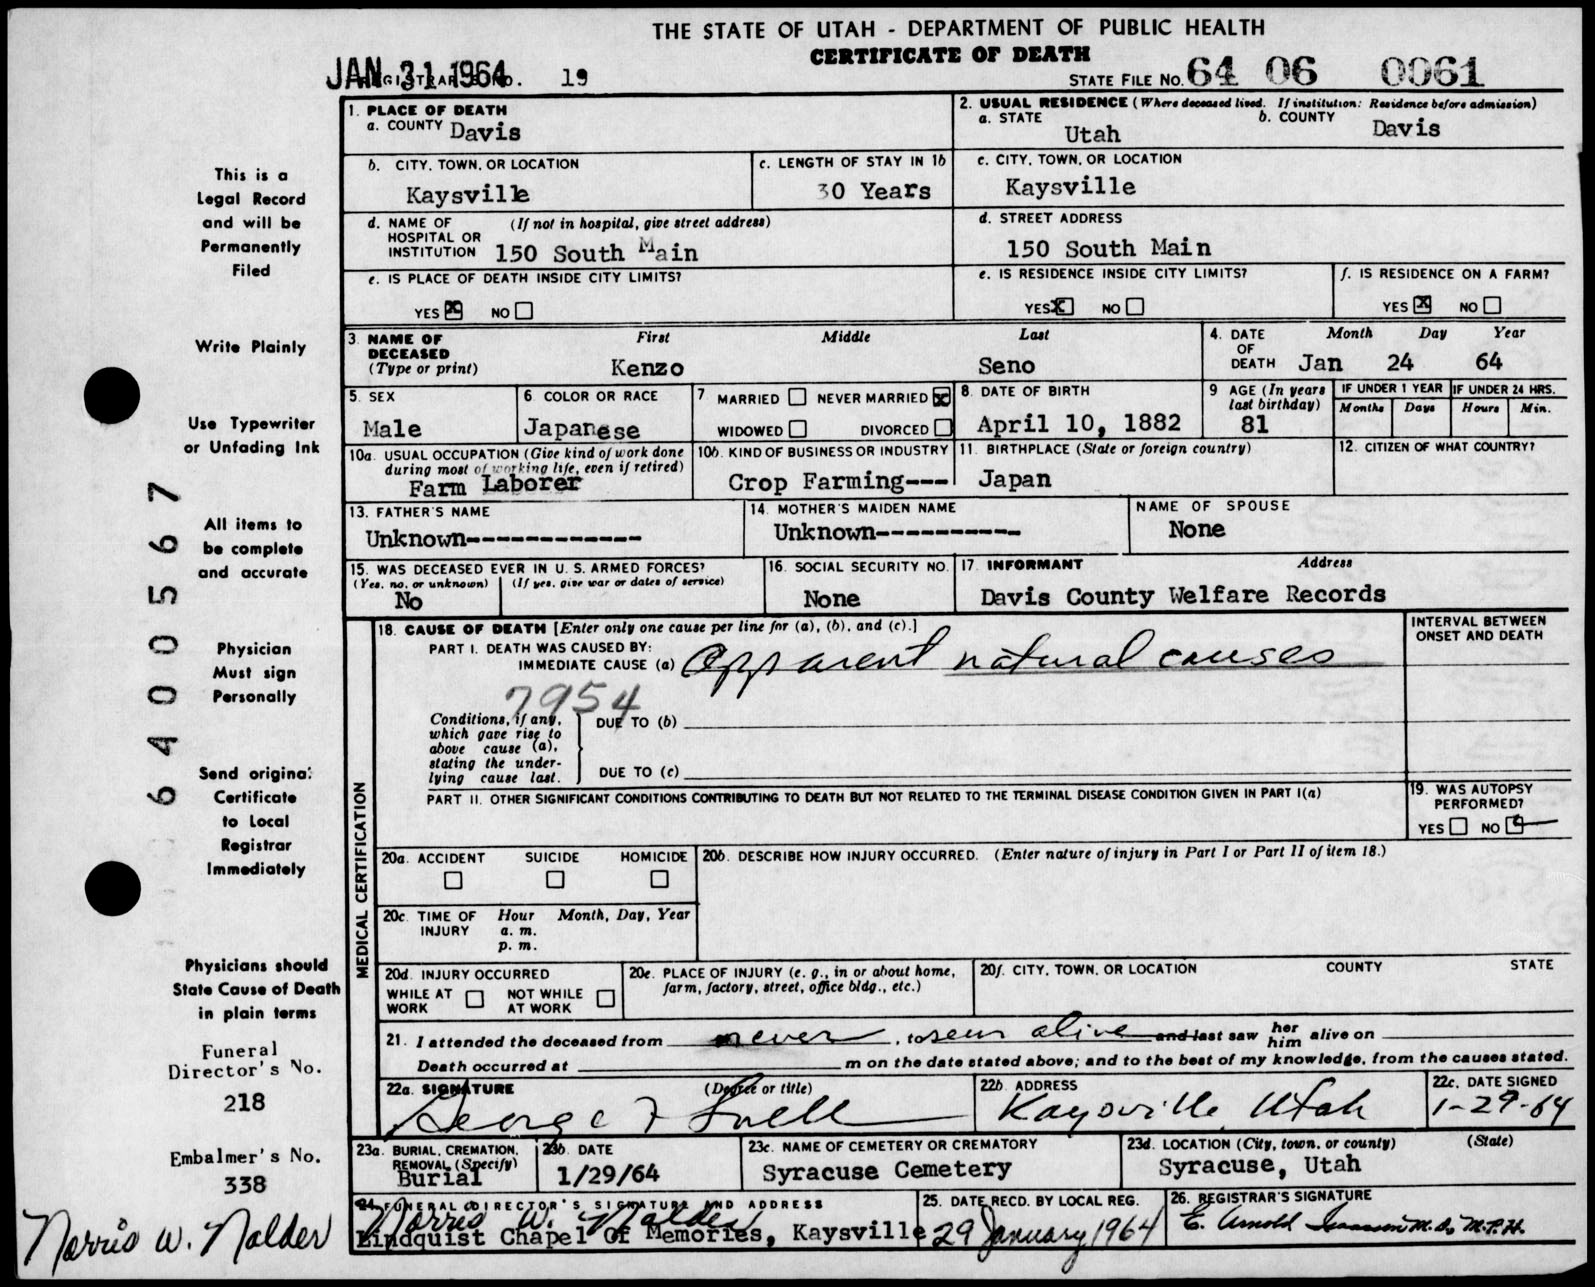 THE STATE OF UTAH - DEPARTMENT OF PUBLIC HEALTH
CERTIFICATE OF DEATH
JAN 31 1964
REGISTRAR'S NO. 19
STATE FILE NO. 64 06 0061
This is a
Legal Record
and will be
Permanently
Filed
Write Plainly
Use Typewriter
or Unfading Ink
All items to
be complete
and accurate
Physician
Must sign
Personally
Send original
Certificate
to Local
Registrar
Immediately
Physicians should
State Cause of Death
in plain terms
Funeral
Director's No.
218
Embalmer's No.
338
Norris W. Nalder
6400567
1. PLACE OF DEATH
a. COUNTY Davis
2. USUAL RESIDENCE (Where deceased lived. If institution: Residence before admission)
a. STATE Utah
b. COUNTY Davis
b. CITY, TOWN, OR LOCATION
Kaysville
c. LENGTH OF STAY IN 1b
30 Years
c. CITY, TOWN, OR LOCATION
Kaysville
d. NAME OF HOSPITAL OR INSTITUTION (If not in hospital, give street address)
150 South Main
d. STREET ADDRESS
150 South Main
e. IS PLACE OF DEATH INSIDE CITY LIMITS?
YES X NO
e. IS RESIDENCE INSIDE CITY LIMITS?
YES X NO
f. IS RESIDENCE ON A FARM?
YES X NO
3. NAME OF DECEASED (Type or print)
First Middle Last
Kenzo Seno
4. DATE OF DEATH Month Day Year
Jan 24 64
5. SEX
Male
6. COLOR OR RACE
Japanese
7 MARRIED NEVER MARRIED X
WIDOWED DIVORCED
8. DATE OF BIRTH
April 10, 1882
9 AGE (In years last birthday)
81
IF UNDER 1 YEAR IF UNDER 24 HRS.
Months Days Hours Min.
10a. USUAL OCCUPATION (Give kind of work done during most of working life, even if retired)
Farm Laborer
10b. KIND OF BUSINESS OR INDUSTRY
Crop Farming---
11. BIRTHPLACE (State or foreign country)
Japan
12. CITIZEN OF WHAT COUNTRY?
13. FATHER'S NAME
Unknown------------
14. MOTHER'S MAIDEN NAME
Unknown----------
NAME OF SPOUSE
None
15. WAS DECEASED EVER IN U. S. ARMED FORCES?
(Yes, no, or unknown) (If yes, give war or dates of service)
No
16. SOCIAL SECURITY NO.
None
17. INFORMANT Address
Davis County Welfare Records
MEDICAL CERTIFICATION
18. CAUSE OF DEATH [Enter only one cause per line for (a), (b), and (c).]
INTERVAL BETWEEN ONSET AND DEATH
PART I. DEATH WAS CAUSED BY:
IMMEDIATE CAUSE (a) Apparent natural causes
7954
Conditions, if any, which gave rise to above cause (a), stating the underlying cause last.
DUE TO (b)
DUE TO (c)
PART II. OTHER SIGNIFICANT CONDITIONS CONTRIBUTING TO DEATH BUT NOT RELATED TO THE TERMINAL DISEASE CONDITION GIVEN IN PART I(a)
19. WAS AUTOPSY PERFORMED?
YES NO
20a. ACCIDENT SUICIDE HOMICIDE
20b. DESCRIBE HOW INJURY OCCURRED. (Enter nature of injury in Part I or Part II of item 18.)
20c. TIME OF INJURY Hour Month, Day, Year
a. m.
p. m.
20d. INJURY OCCURRED
WHILE AT WORK NOT WHILE AT WORK
20e. PLACE OF INJURY (e. g., in or about home, farm, factory, street, office bldg., etc.)
20f. CITY, TOWN, OR LOCATION COUNTY STATE
21. I attended the deceased from never seen alive and last saw her him alive on
Death occurred at m on the date stated above; and to the best of my knowledge, from the causes stated.
22a. SIGNATURE (Degree or title)
George F
22b. ADDRESS
Kaysville, Utah
22c. DATE SIGNED
1-29-64
23a. BURIAL, CREMATION, REMOVAL (Specify)
Burial
23b. DATE
1/29/64
23c. NAME OF CEMETERY OR CREMATORY
Syracuse Cemetery
23d. LOCATION (City, town, or county) (State)
Syracuse, Utah
24. FUNERAL DIRECTOR'S SIGNATURE AND ADDRESS
Norris W. Nalder
Lindquist Chapel Of Memories, Kaysville
25. DATE RECD. BY LOCAL REG.
29 January 1964
26. REGISTRAR'S SIGNATURE
E. Arnold Isaacson M.D., M.P.H.